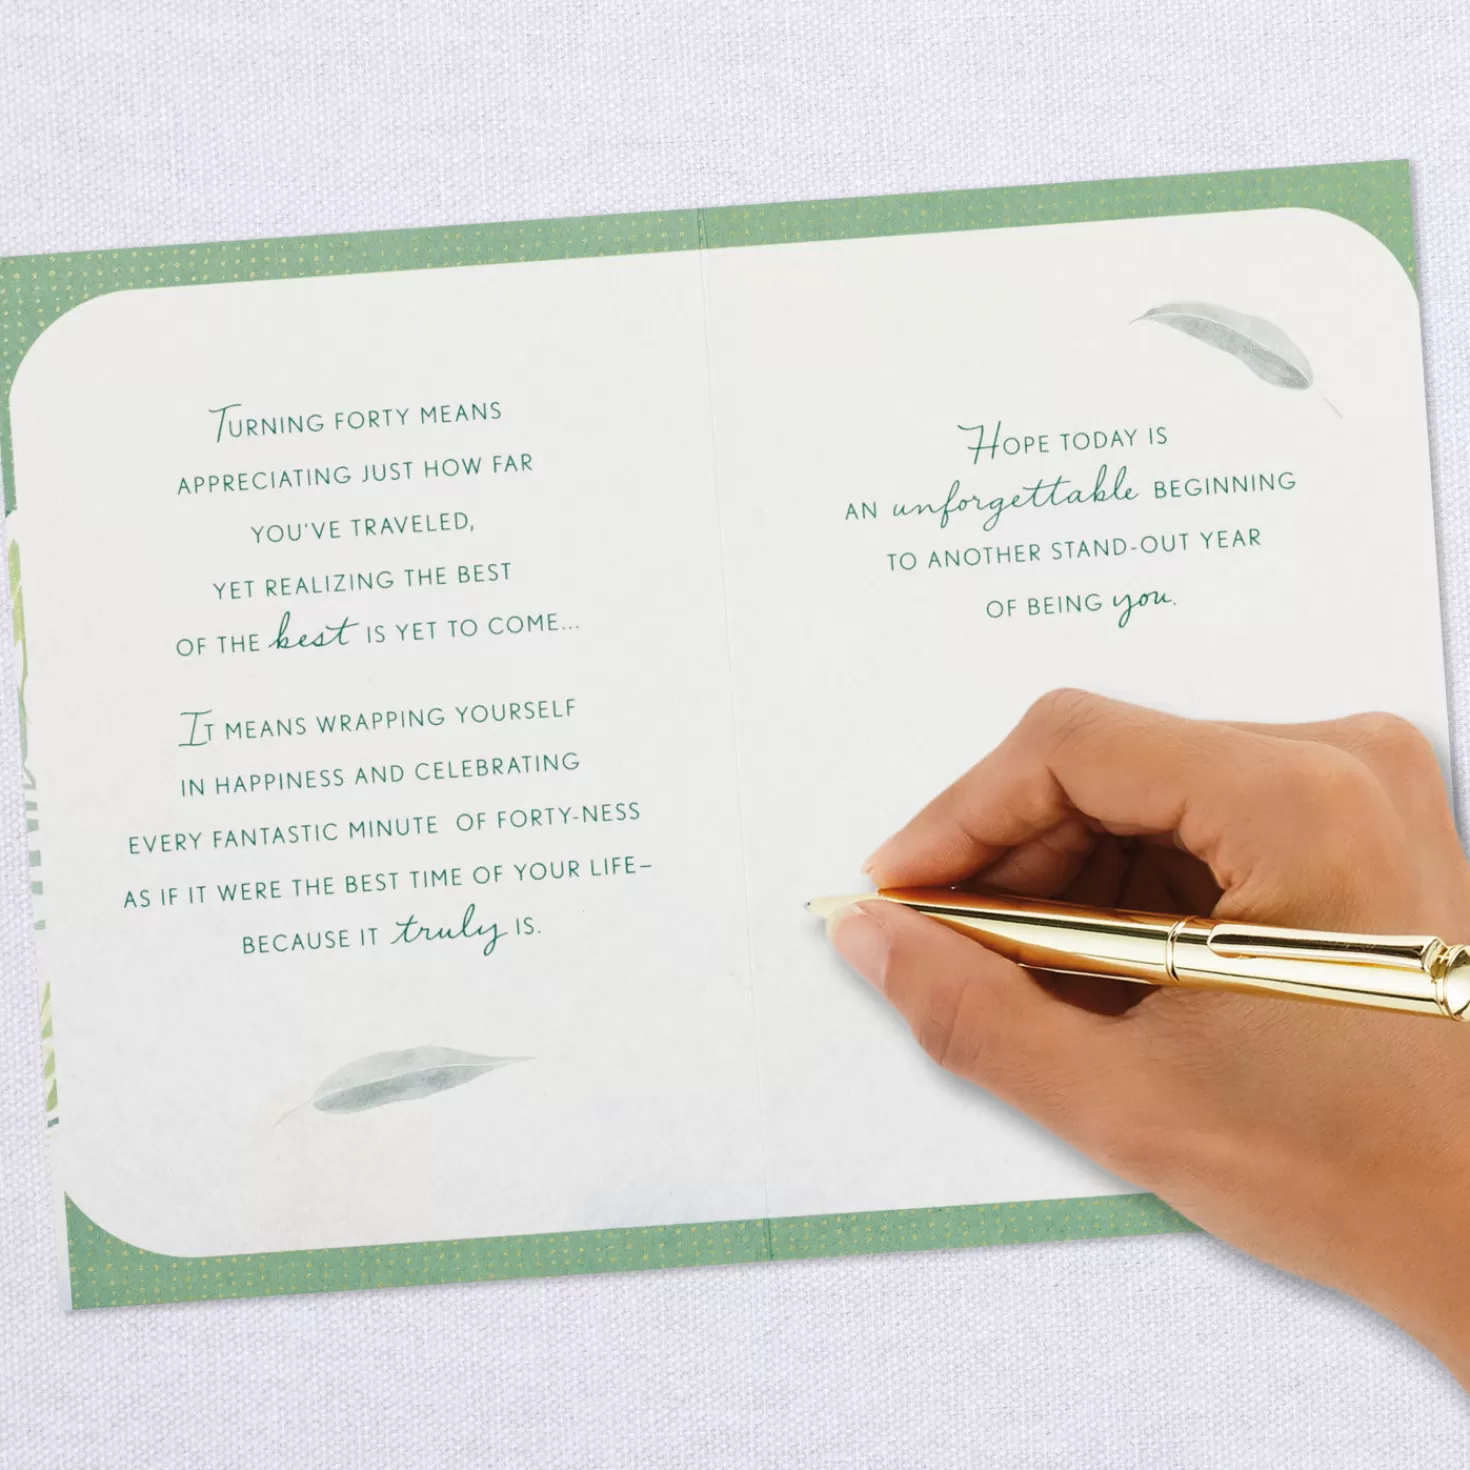 TURNING FORTY MEANS
APPRECIATING JUST HOW FAR
YOU'VE TRAVELED,
YET REALIZING THE BEST
OF THE best IS YET TO COME...
IT MEANS WRAPPING YOURSELF
IN HAPPINESS AND CELEBRATING
EVERY FANTASTIC MINUTE OF FORTY-NESS
AS IF IT WERE THE BEST TIME OF YOUR LIFE–
BECAUSE IT truly IS.
HOPE TODAY IS
AN unforgettable BEGINNING
TO ANOTHER STAND-OUT YEAR
OF BEING you.